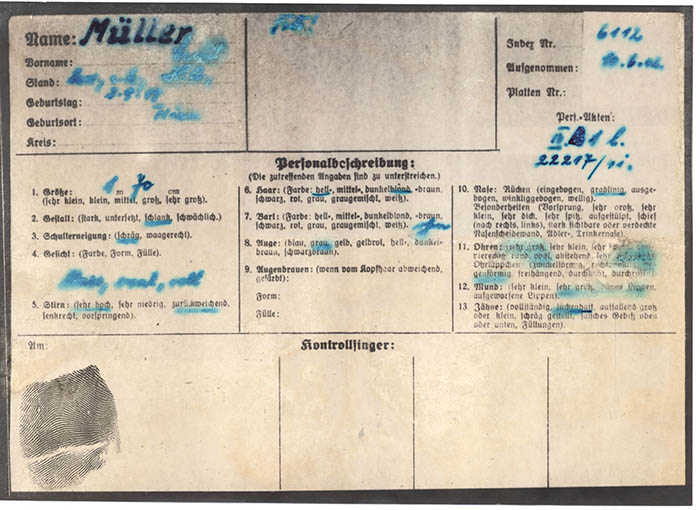 Name: Müller
Vorname:
Stand:
Geburtstag:
Geburtsort:
Kreis:
Index Nr. 6112
Aufgenommen: 10.6.42.
Platten Nr.:
Pers.-Akten:
22217/
Personalbeschreibung:
(Die zutreffenden Angaben sind zu unterstreichen.)
1. Größe: 1 m 70 cm
(sehr klein, klein, mittel, groß, sehr groß).
2. Gestalt: (stark, untersetzt, schlank, schwächlich).
3. Schulterneigung: (schräg, waagerecht).
4. Gesicht: (Farbe, Form, Fülle).
oval, voll
5. Stirn: (sehr hoch, sehr niedrig, zurückweichend,
senkrecht, vorspringend).
6. Haar: (Farbe: hell-, mittel-, dunkelblond, -braun,
schwarz, rot, grau, graugemischt, weiß).
7. Bart: (Farbe: hell-, mittel-, dunkelblond, -braun,
schwarz, rot, grau, graugemischt, weiß).
8. Auge: (blau, grau, gelb, gelbrot, hell-, dunkel-
braun, schwarzbraun).
9. Augenbrauen: (wenn vom Kopfhaar abweichend,
gefärbt):
Form:
Fülle:
10. Nase: Rücken (eingebogen, gradlinig, ausge-
bogen, winkliggebogen, wellig).
Besonderheiten (Vorsprung, sehr groß, sehr
klein, sehr dick, sehr spitz, aufgestülpt, schief
(nach rechts, links), stark sichtbare oder verdeckte
Nasenscheidewand, Adler-, Trinkernase).
11. Ohren: (sehr groß, sehr klein,
viereckig, rund, oval, abstehend, sehr
Ohrläppchen (zwickelförmig,
genförmig, freihängend, durchlocht,
12. Mund: (sehr klein, sehr groß, dünne Lippen,
aufgeworfene Lippen).
13. Zähne: (vollständig, lückenhaft, auffallend groß
oder klein, schräg gestellt, falsches Gebiß oben
oder unten, Füllungen).
Am:
Kontrollfinger: